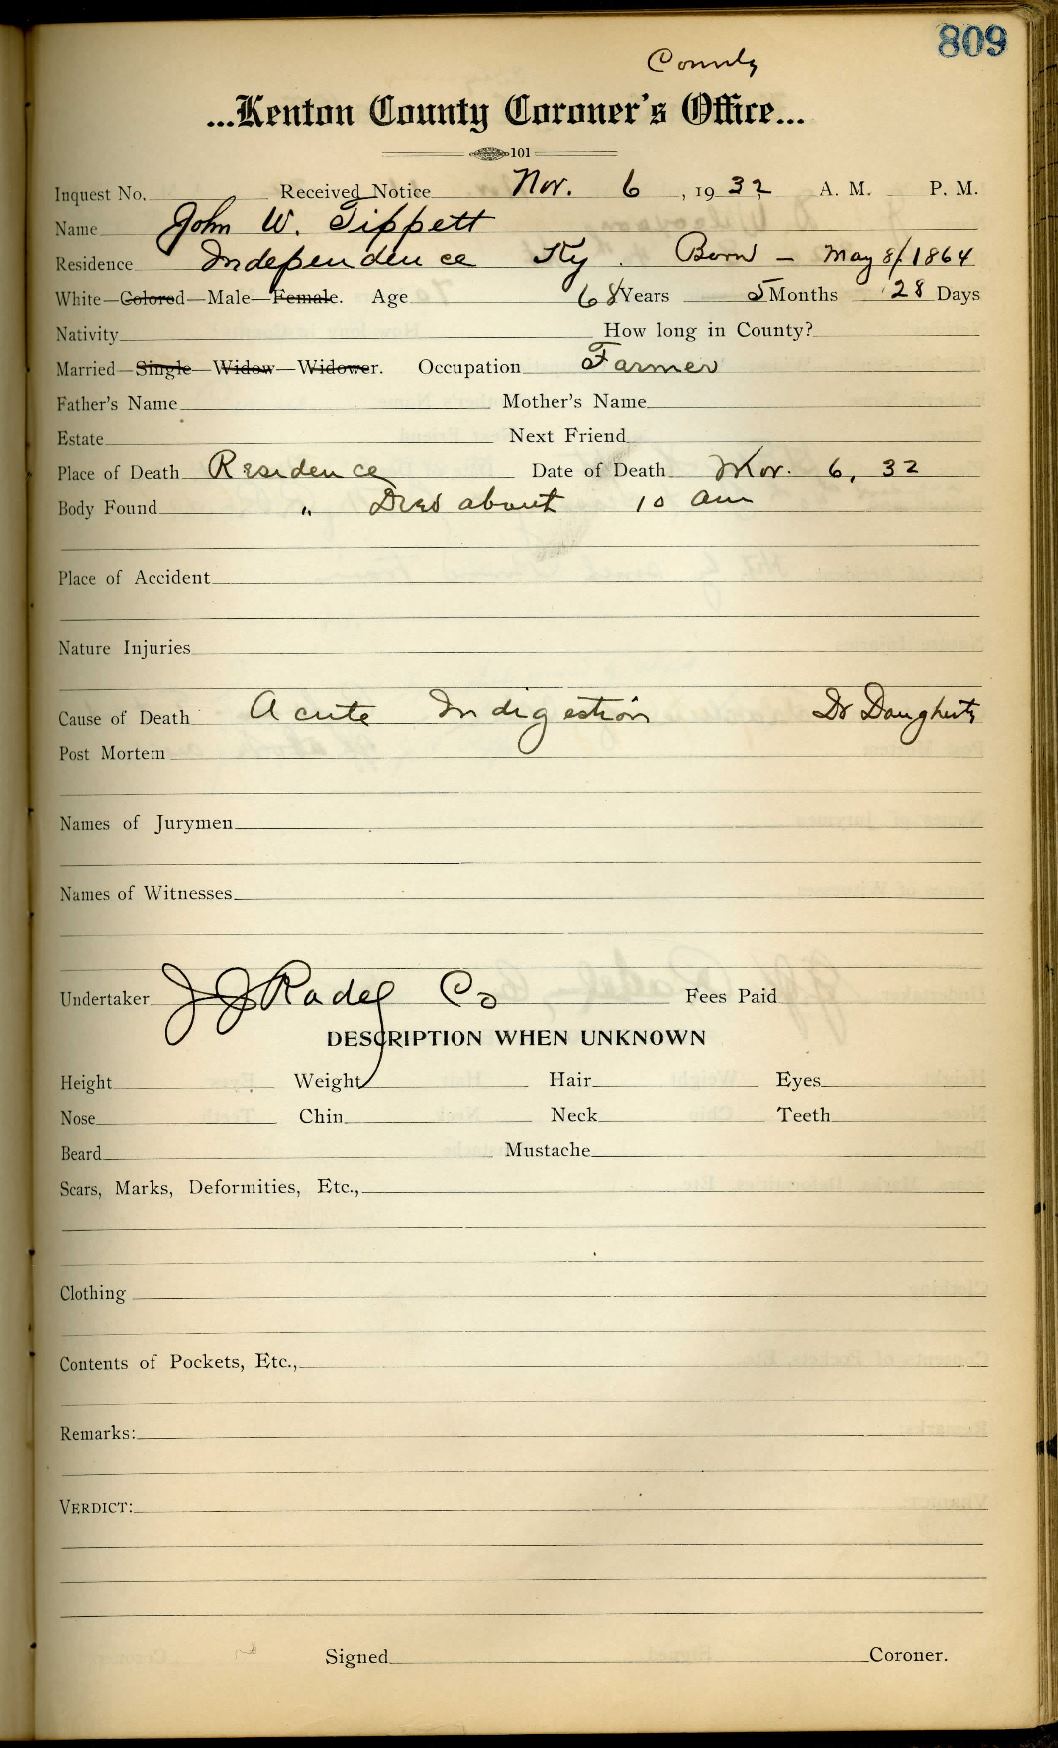 809
County
...Kenton County Coroner's Office...
101
Inquest No. Received Notice Nov. 6, 1932 A. M. P. M.
Name John W. Tippett
Residence Independence Ky. Born - May 8/1864
White—Colored—Male—Female. Age 68 Years 5 Months 28 Days
Nativity How long in County?
Married—Single—Widow—Widower. Occupation Farmer
Father's Name Mother's Name
Estate Next Friend
Place of Death Residence Date of Death Nov. 6, 32
Body Found " Died about 10 am
Place of Accident
Nature Injuries
Cause of Death Acute Indigestion Dr Daugherty
Post Mortem
Names of Jurymen
Names of Witnesses
Undertaker J J Radel Co Fees Paid
DESCRIPTION WHEN UNKNOWN
Height Weight Hair Eyes
Nose Chin Neck Teeth
Beard Mustache
Scars, Marks, Deformities, Etc.,
Clothing
Contents of Pockets, Etc.,
Remarks:
VERDICT:
Signed Coroner.